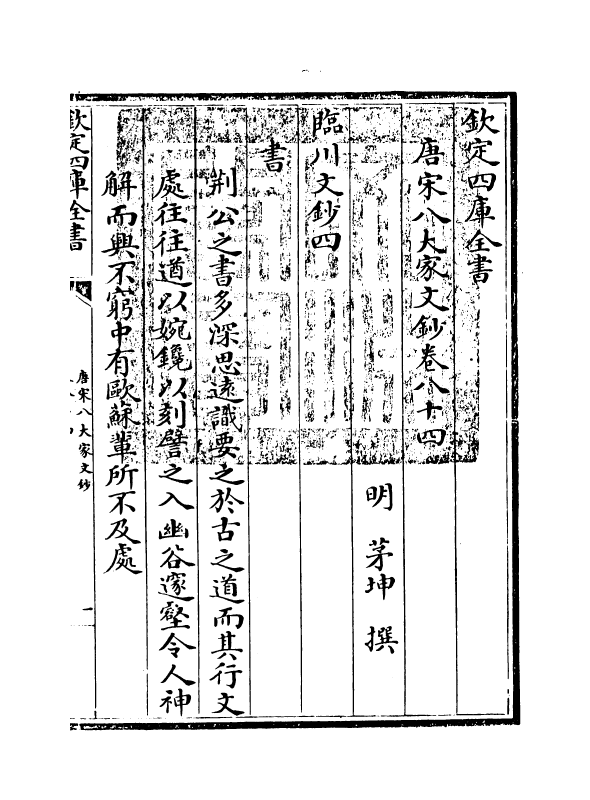 欽定四庫全書
唐宋八大家文鈔卷八十四
明 茅坤 撰
臨川文鈔四
書
荆公之書多深思遠識要之於古之道而其行文
處往往遒以婉鑱以刻譬之入幽谷邃壑令人神
解而興不窮中有歐蘇輩所不及處
欽定四庫全書
唐宋八大家文鈔
一